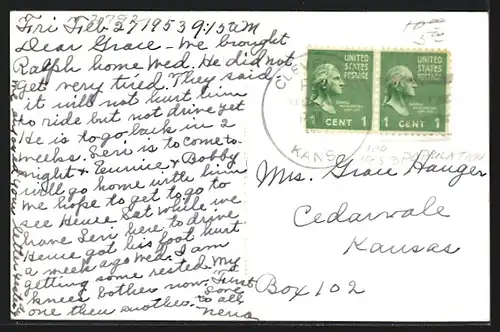 Fri Feb 27 1953 9:15 AM
Dear Grace - We brought
Ralph home Wed. He did not
get very tired. They said
it will not hurt him
to ride but not drive yet
He is to go back in 2
weeks. Leri is to come to-
night & Eunnice & Bobby
will go home with him
We hope to get to go to
see Hence Sat while we
have Leri here to drive
Hence got his foot hurt
a week ago Wed. I am
getting some rested My
knees bother now. First
one then another. Love
to all
Nena
UNITED
STATES
POSTAGE
1 CENT 1
UNITED
STATES
POSTAGE
1 CENT 1
KANS
POPULATION
Mrs. Grace Hauger
Cedarvale
Kansas
Box 102